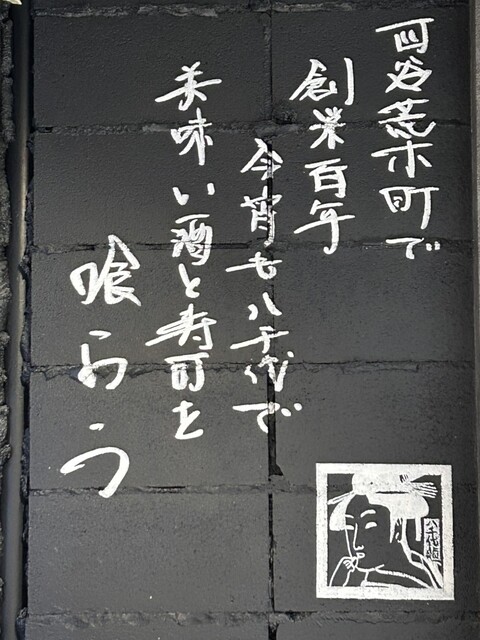 四谷荒木町で
創業百年
今宵も八千代で
美味い酒と寿司を
喰らう
八千代鮨